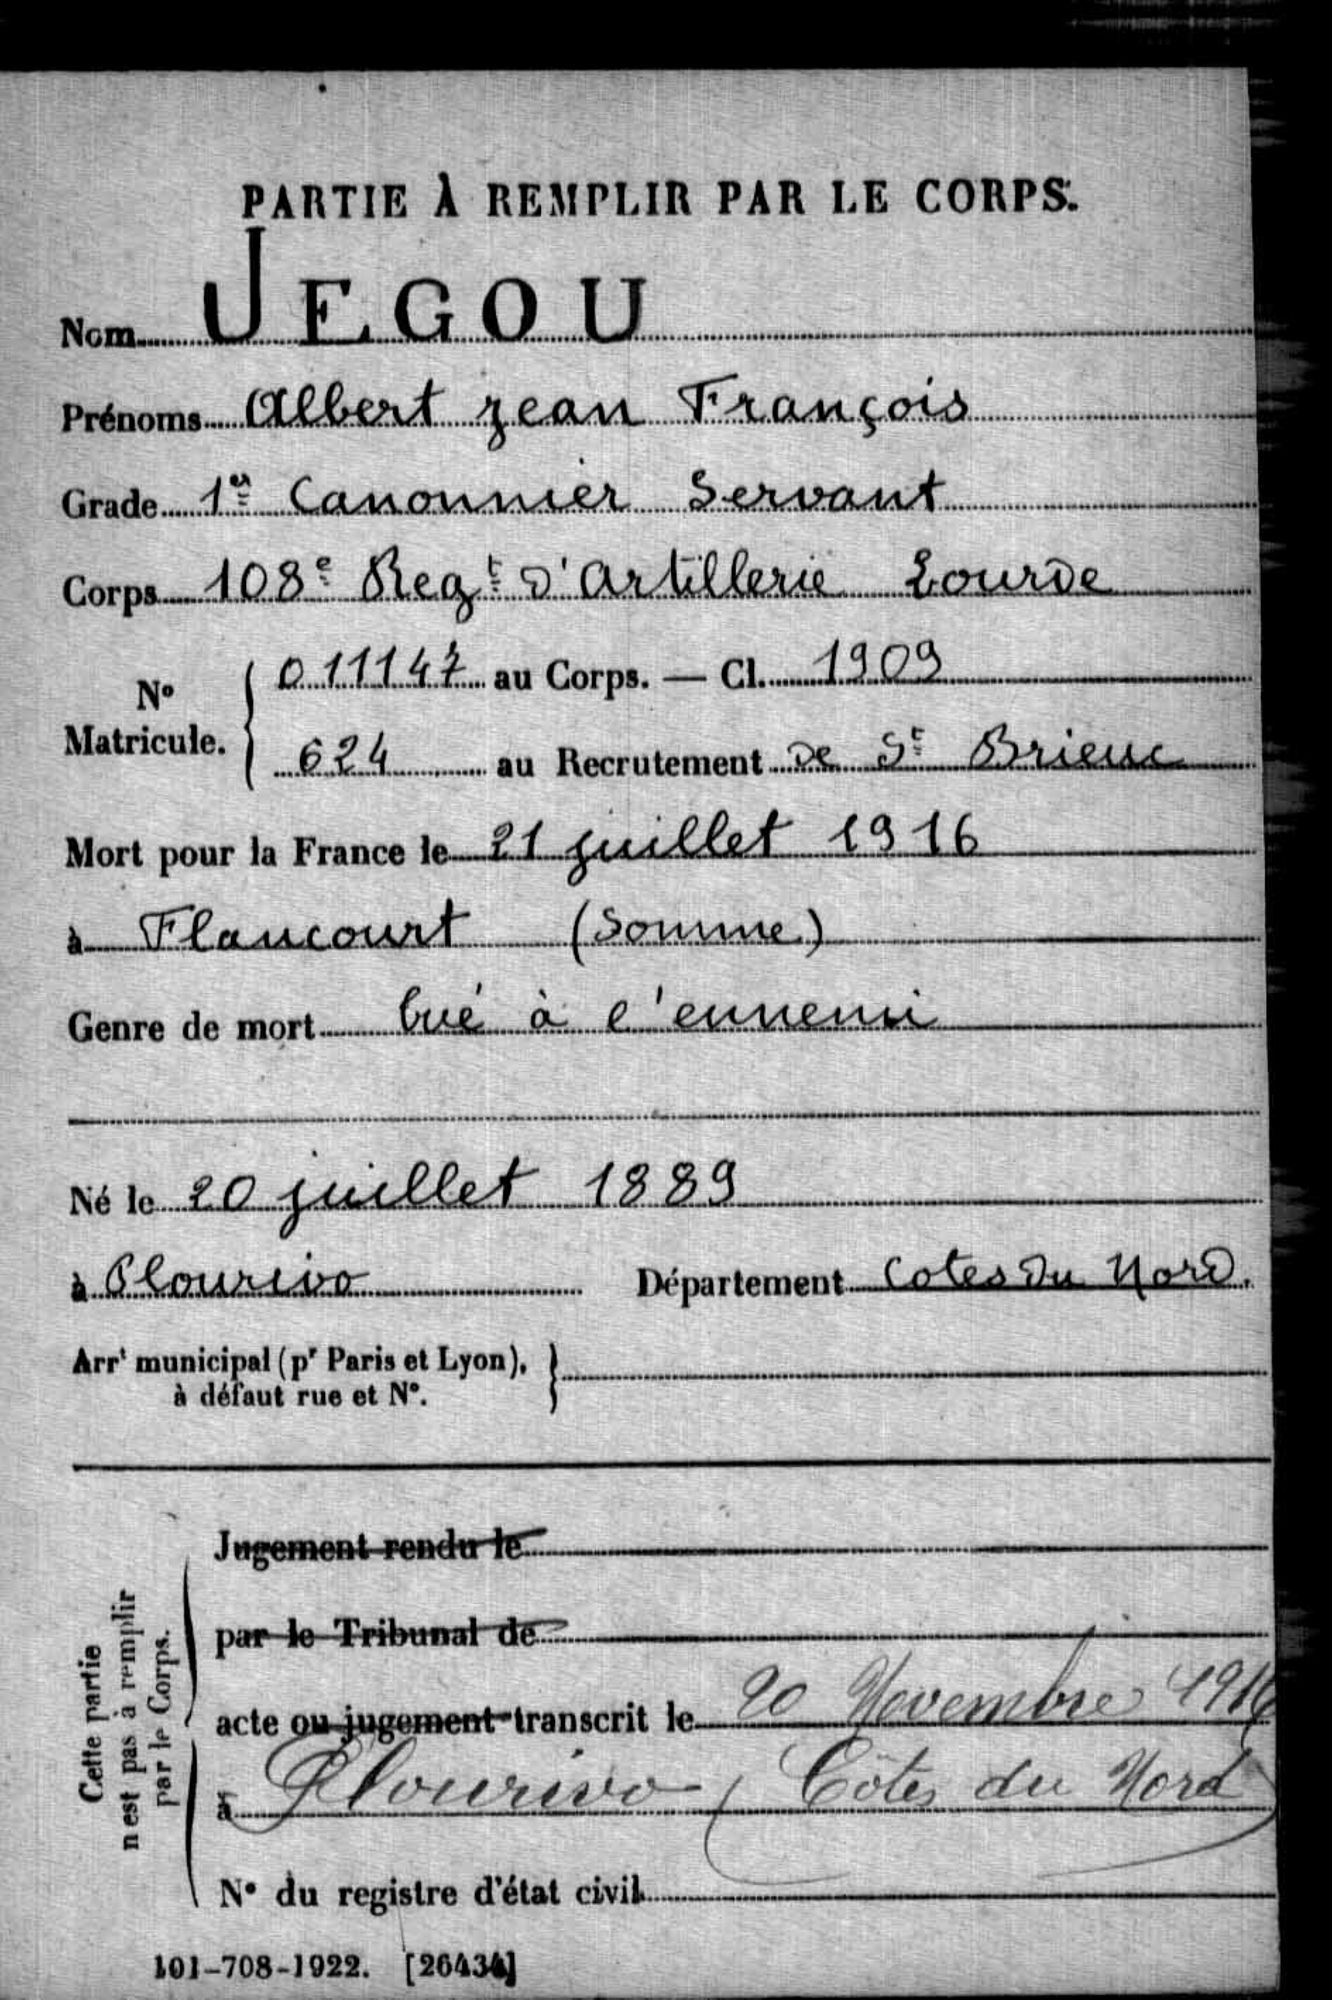 PARTIE À REMPLIR PAR LE CORPS.
Nom JEGOU
Prénoms Albert Jean François
Grade 1er Canonnier Servant
Corps 108e Regt d'Artillerie Lourde
No Matricule. 011147 au Corps. — Cl. 1909
624 au Recrutement de St Brieuc
Mort pour la France le 21 juillet 1916
à Flaucourt (Somme)
Genre de mort tué à l'ennemi
Né le 20 juillet 1889
à Plourivo Département Cotes du Nord.
Arrt municipal (pr Paris et Lyon),
à défaut rue et N°.
Cette partie
n'est pas à remplir
par le Corps.
Jugement rendu le
par le Tribunal de
acte ou jugement transcrit le 20 Novembre 1916
à Plourivo (Côtes du Nord
N° du registre d'état civil
101-708-1922. [26434]